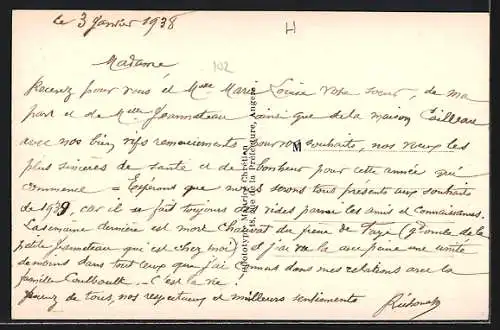 le 3 Janvier 1938
H
102
Madame
Recevez pour vous et Melle Marie Louise votre soeur, de ma
part et de Melle Jeanneteau ainsi que de la maison Cailleau
avec nos bien vifs remerciements pour vos souhaits, nos voeux les
plus sincères de santé et de bonheur pour cette année qui
commence = Espérons que nous serons tous présents aux souhaits
de 1939, car il se fait toujours des vides parmi les amis et connaissances.
La semaine dernière est mort du
petite Jeanneteau qui est chez moi) et j'ai vu la une
de moins dans tout ceux que j'ai connus dans mes relations avec la
famille C'est la vie!
Recevez de tous, nos respectueux et meilleurs sentiments
Phototypie Maurice Chrétien
rue de la Préfecture, Angers